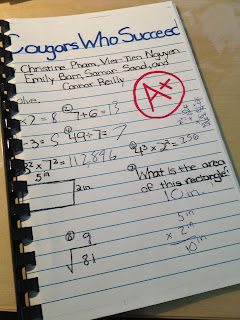 Cougars Who Succeed
Christine Pham, Vier-Tien Nguyen,
Emily Barn, Saman Saad, and
Conor Reilly
A+
olve.
x 2 = 8 ② 7+6=13
÷3= 5 ④ 49÷7= 7
3² x 7² = 112,896 ⑥ 4³ x 2² = 256
5in
2in.
What is the area
of this rectangle?
10 in.
5in
x 2in
10in
⑧ 9
√81